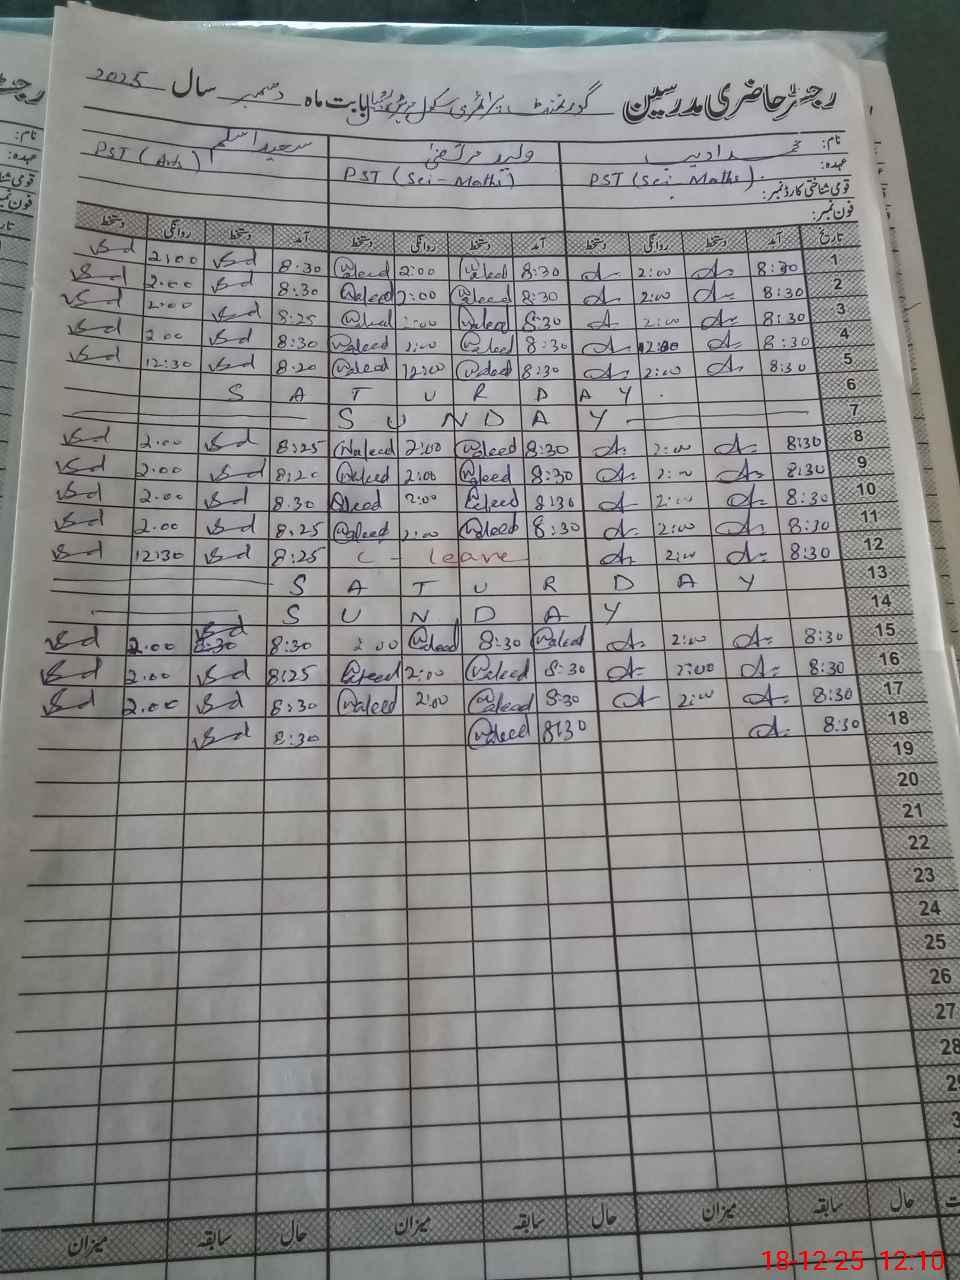 رجسٹر حاضری مدرسین گورنمنٹ پرائمری سکول بابت ماہ دسمبر سال 2025
نام: محمد ادیب ولید مرتضیٰ سعید اسلم
عہدہ: PST (Sci-Maths) PST (Sci-Maths) PST (Arts)
قومی شناختی کارڈ نمبر:
فون نمبر:
تاریخ آمد دستخط روانگی دستخط آمد دستخط روانگی دستخط آمد دستخط روانگی دستخط
1 8:30 2:00 8:30 Waleed 2:00 Waleed 8:30 2:00
2 8:30 2:00 8:30 Waleed 2:00 Waleed 8:30 2:00
3 8:30 2:00 8:30 Waleed 2:00 Waleed 8:25 2:00
4 8:30 8:30 Waleed 2:00 Waleed 8:30 2:00
5 8:30 2:00 8:30 Waleed 12:00 Waleed 8:20 12:30
6 SATURDAY
7 SUNDAY
8 8:30 2:00 8:30 Waleed 2:00 Waleed 8:25 2:00
9 8:30 2:00 8:30 Waleed 2:00 Waleed 8:20 2:00
10 8:30 2:00 8:30 Waleed 2:00 Waleed 8:30 2:00
11 8:30 2:00 8:30 Waleed 2:00 Waleed 8:25 2:00
12 8:30 2:00 C - leave 8:25 12:30
13 SATURDAY
14 SUNDAY
15 8:30 2:00 Waleed 8:30 Waleed 2:00 8:30 8:30 2:00
16 8:30 2:00 8:30 Waleed 2:00 Waleed 8:25 2:00
17 8:30 2:00 8:30 Waleed 2:00 Waleed 8:30 2:00
18 8:30 8:30 Waleed 8:30
19
20
21
22
23
24
25
26
27
28
حال سابقہ میزان حال سابقہ میزان حال سابقہ میزان
18-12-25 12:10